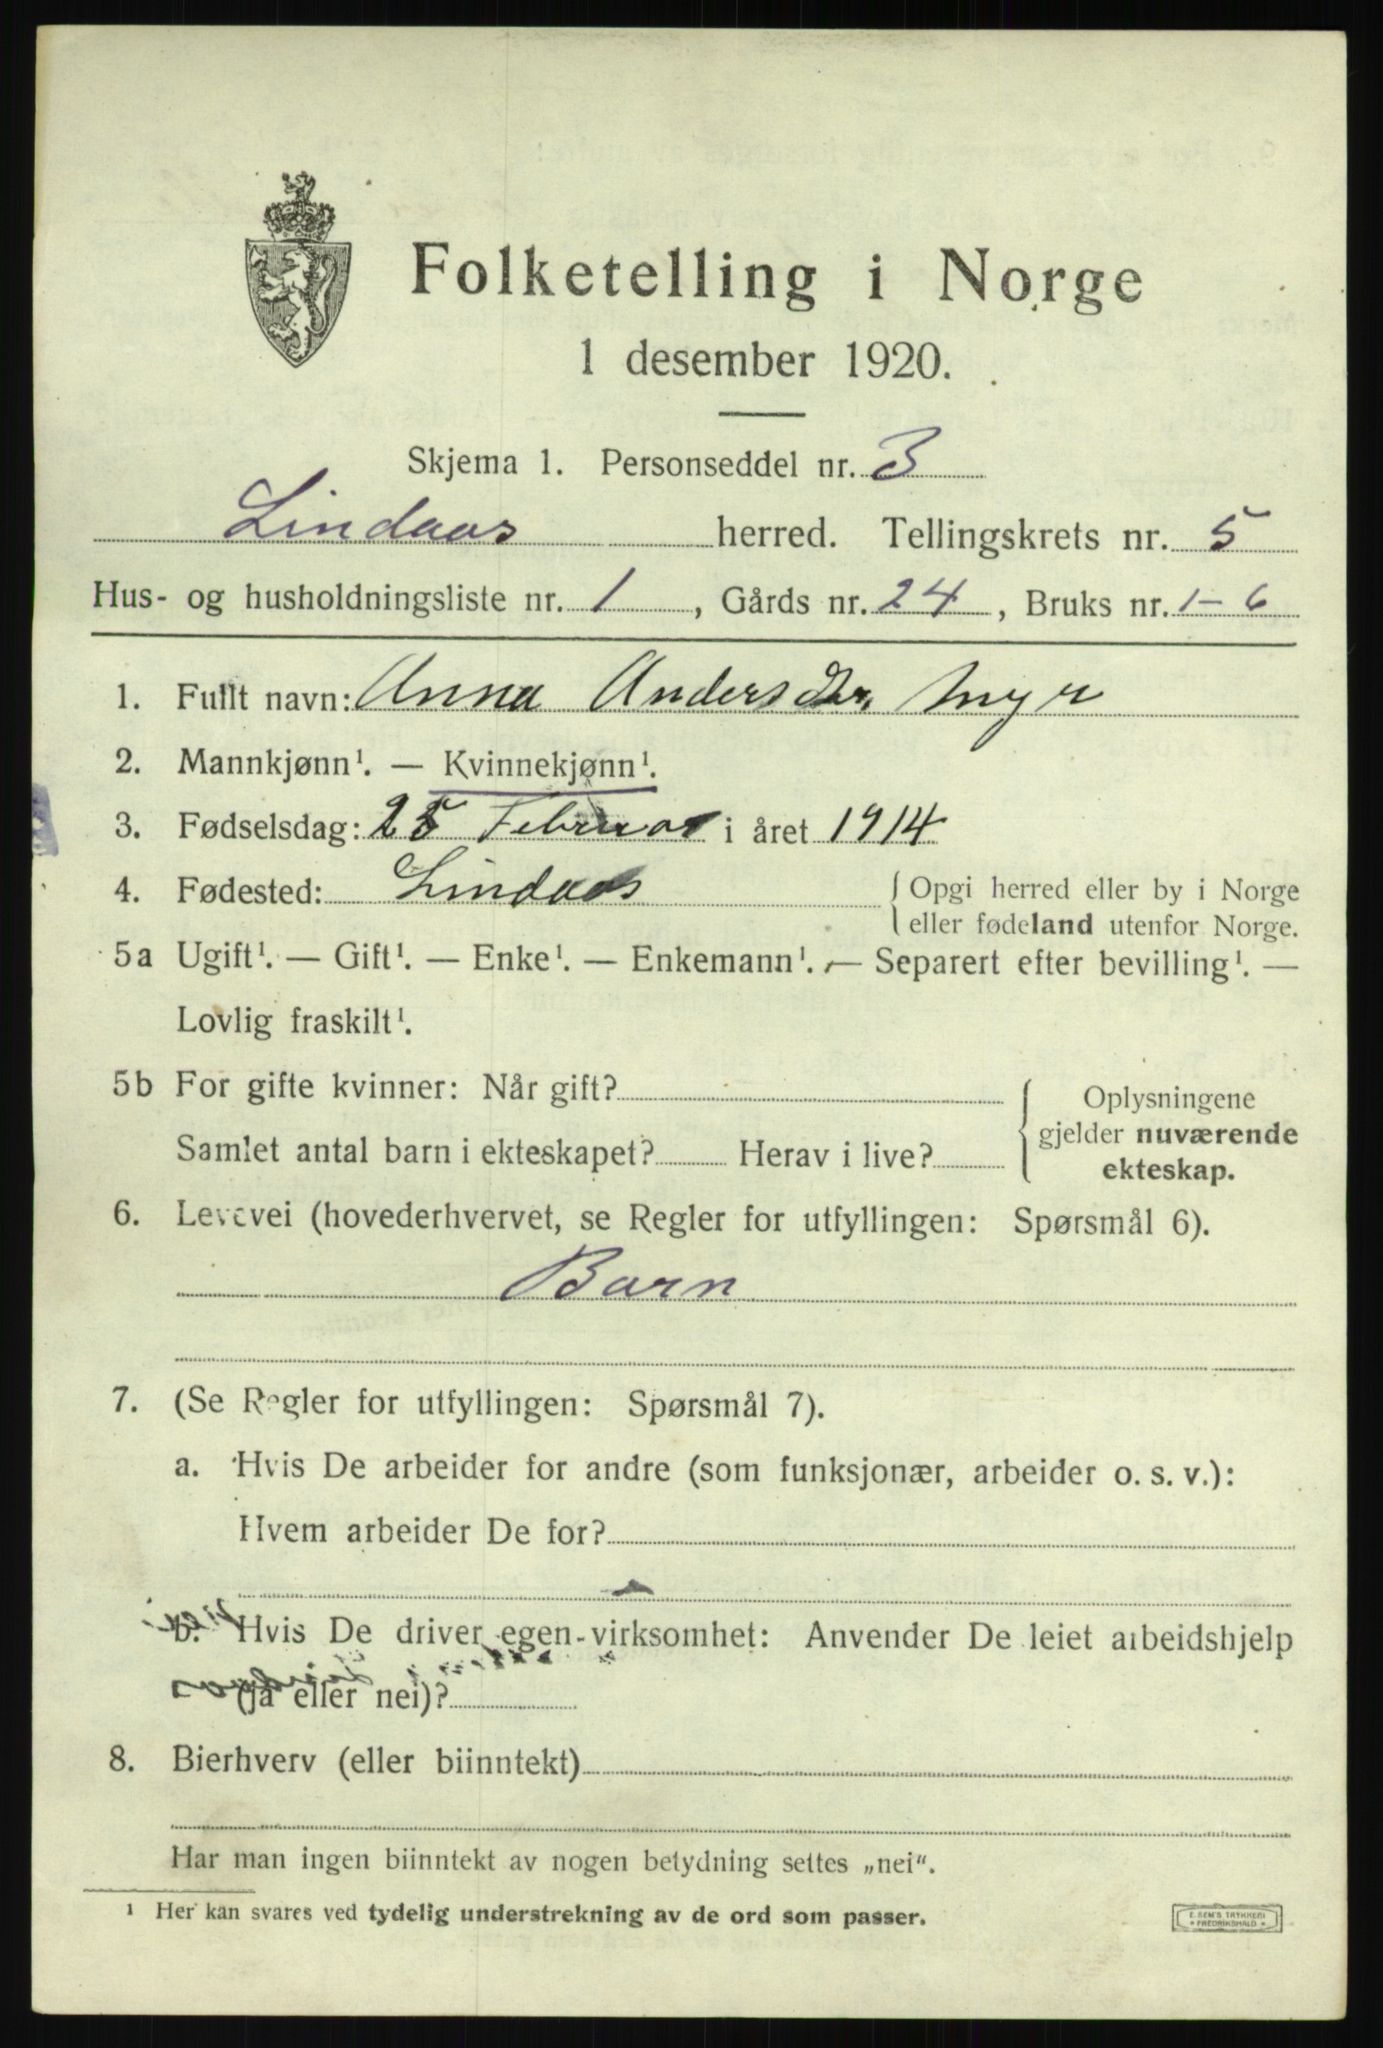 Folketelling i Norge
1 desember 1920.
Skjema 1. Personseddel nr. 3
Lindaas herred. Tellingskrets nr. 5
Hus- og husholdningsliste nr. 1, Gårds nr. 24, Bruks nr. 1-6
1. Fullt navn: Anna Andersdtr.
2. Mannkjønn¹. — Kvinnekjønn¹.
3. Fødselsdag: 25 Februar i året 1914
4. Fødested: Lindaas { Opgi herred eller by i Norge
eller fødeland utenfor Norge.
5a Ugift¹. — Gift¹. — Enke¹. — Enkemann¹. — Separert efter bevilling¹. —
Lovlig fraskilt¹.
5b For gifte kvinner: Når gift?
Samlet antal barn i ekteskapet? Herav i live?
Oplysningene
gjelder nuværende
ekteskap.
6. Levevei (hovederhvervet, se Regler for utfyllingen: Spørsmål 6).
Barn
7. (Se Regler for utfyllingen: Spørsmål 7).
a. Hvis De arbeider for andre (som funksjonær, arbeider o. s. v.):
Hvem arbeider De for?
b. Hvis De driver egen virksomhet: Anvender De leiet arbeidshjelp
(ja eller nei)?
8. Bierhverv (eller biinntekt)
Har man ingen biinntekt av nogen betydning settes „nei".
¹ Her kan svares ved tydelig understrekning av de ord som passer.
E. SEM'S TRYKKERI
* FREDRIKSHALD *